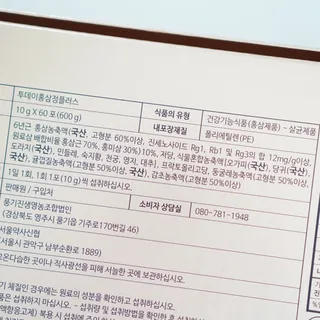 투데이홍삼정플러스
10 g X 60 포 (600 g) 식품의 유형 건강기능식품(홍삼제품) - 살균제품
내포장재질 폴리에틸렌(PE)
6년근 홍삼농축액(국산, 고형분 60%이상, 진세노사이드 Rg1, Rb1 및 Rg3의 합 12mg/g이상,
원료삼 배합비율 홍삼근 70%, 홍미삼 30%)10%, 저당, 식물혼합농축액[오가피(국산), 당귀(국산),
도라지(국산), 민들레, 숙지황, 천궁, 영지, 대추], 프락토올리고당, 둥굴레농축액(고형분
국산), 귤껍질농축액(국산, 고형분50%이상), 감초농축액(국산,
1일 1회, 1회 1포(10 g)씩 섭취하십시오.
판매원 / 구입처 소비자 상담실 080-781-1948
풍기진생영농조합법인
(경상북도 영주시 풍기읍 기주로170번길 46)
서울약사신협
서울시 관악구 남부순환로 1889)
고온다습한 곳이나 직사광선을 피해 서늘한 곳에 보관하십시오.
기 체질인 경우에는 원료의 성분을 확인하고 섭취하십시오.
품은 섭취하지 마십시오. - 섭취량 및 섭취방법을 확인하
액항응고제) 복용 시 섭취에 주의